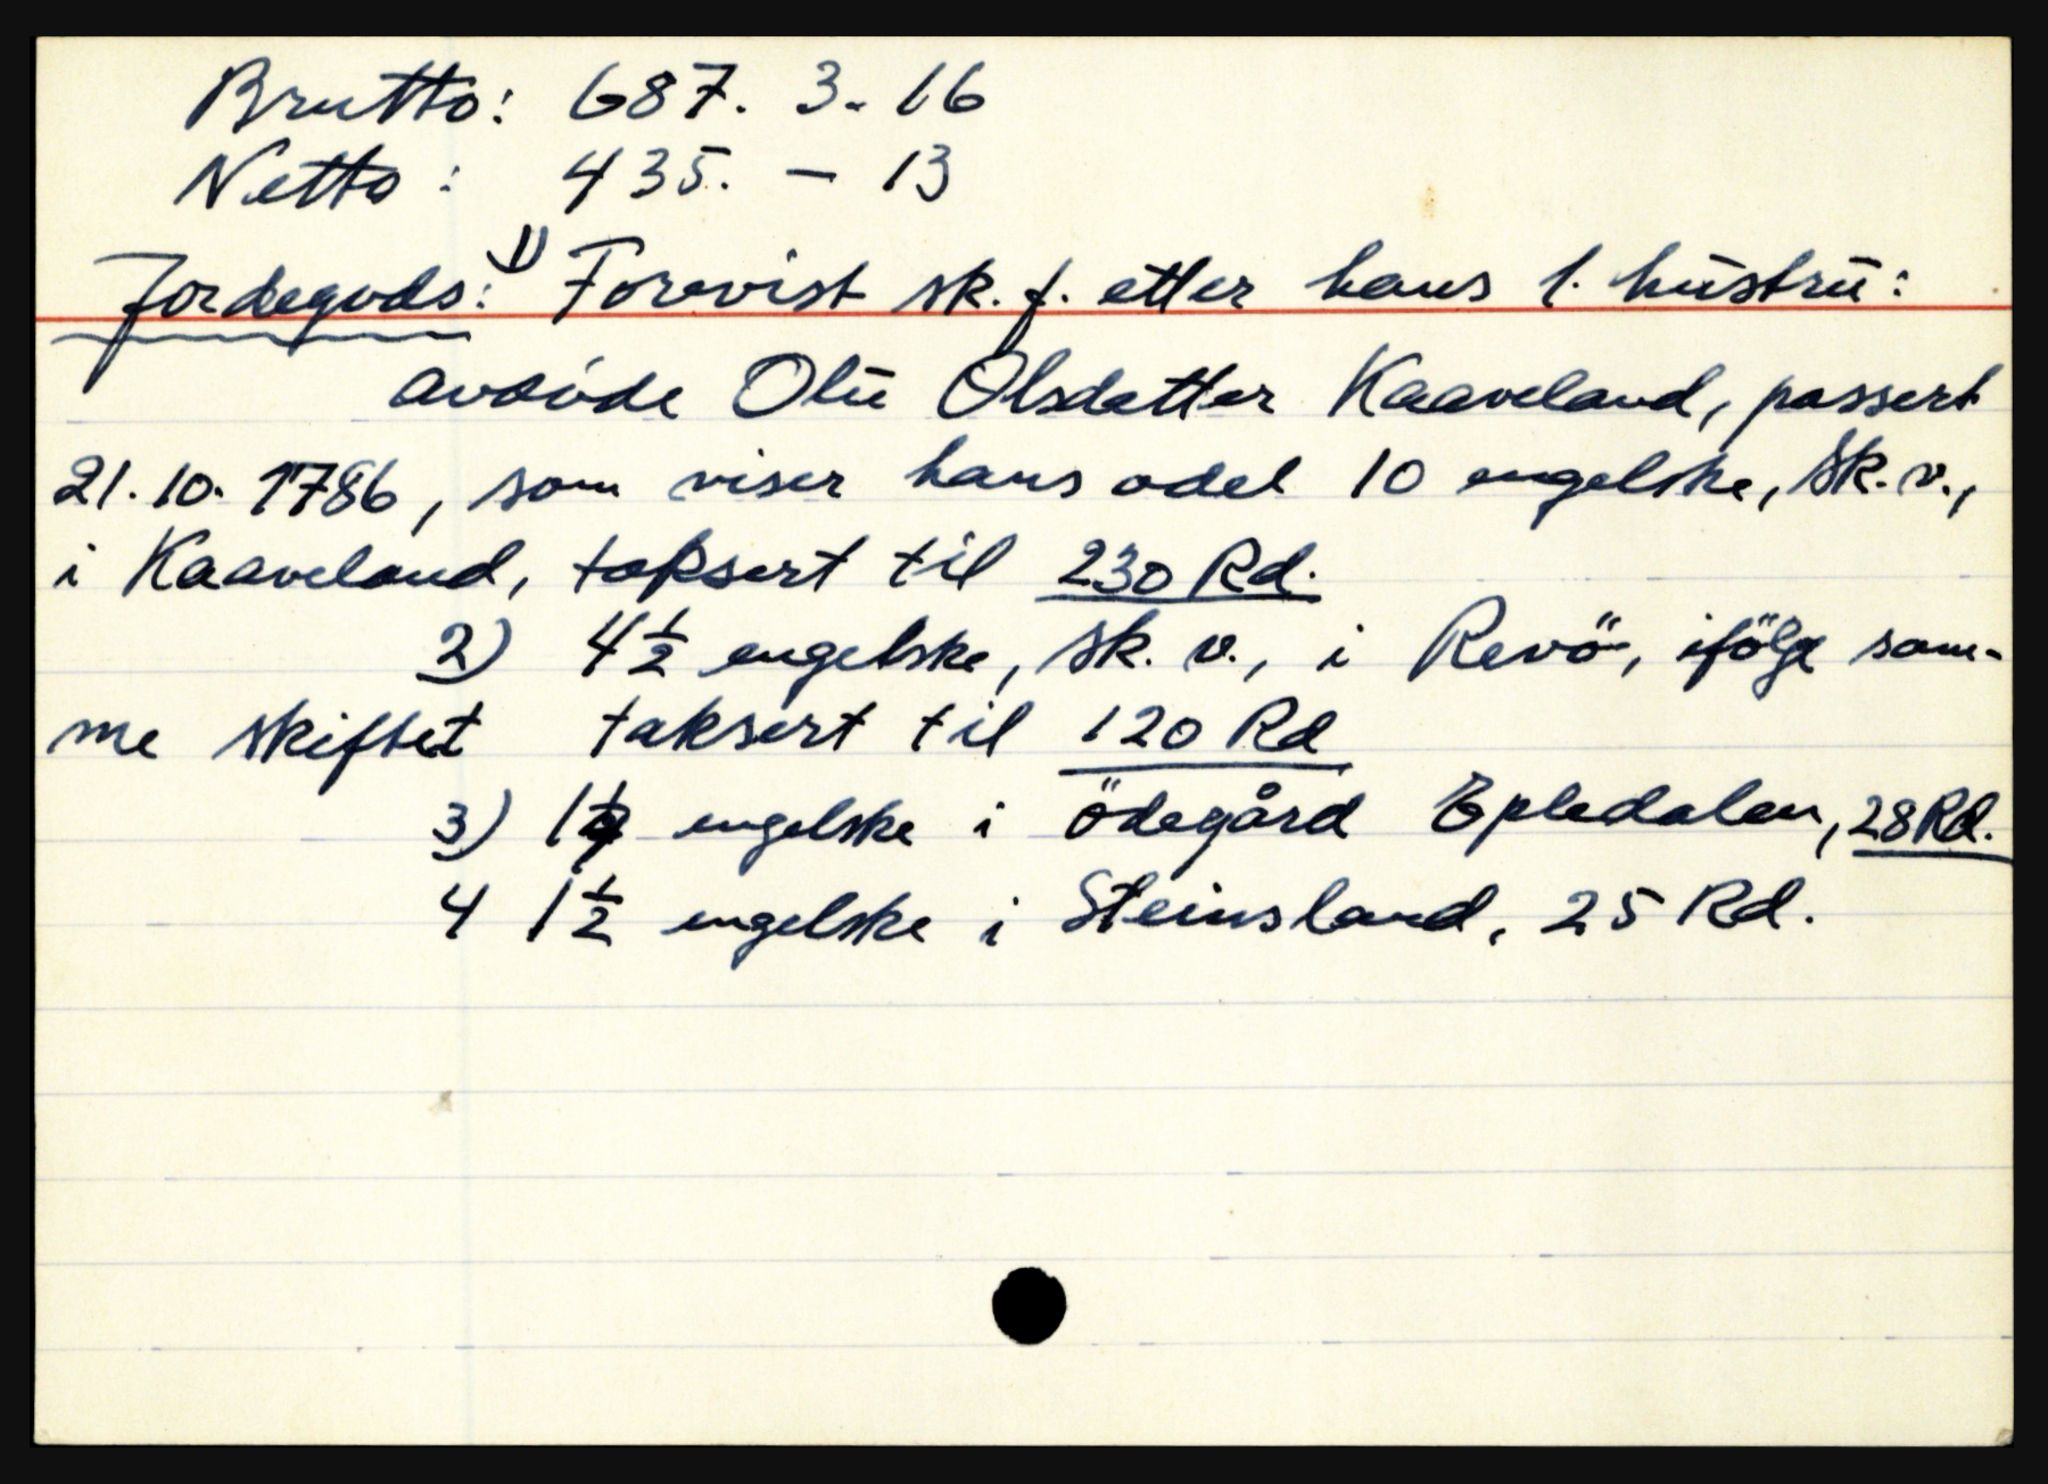 Brutto: 687. 3. 16
Netto: 435. - 13
Jordegods: 1) Forevist sk. f. etter hans 1. hüstrü:
avdöde Olü Olsdatter Kaaveland, passert
21.10. 1786, som viser hans odel 10 engelske, sk. v.,
i Kaaveland, taksert til 230 Rd.
2) 4 1/2 engelske, sk. v., i Revö, ifölge sam-
me skiftet taksert til 120 Rd
3) engelske i ödegård Epledalen, 28 Rd.
4 1 1/2 engelske i Steinsland, 25 Rd.